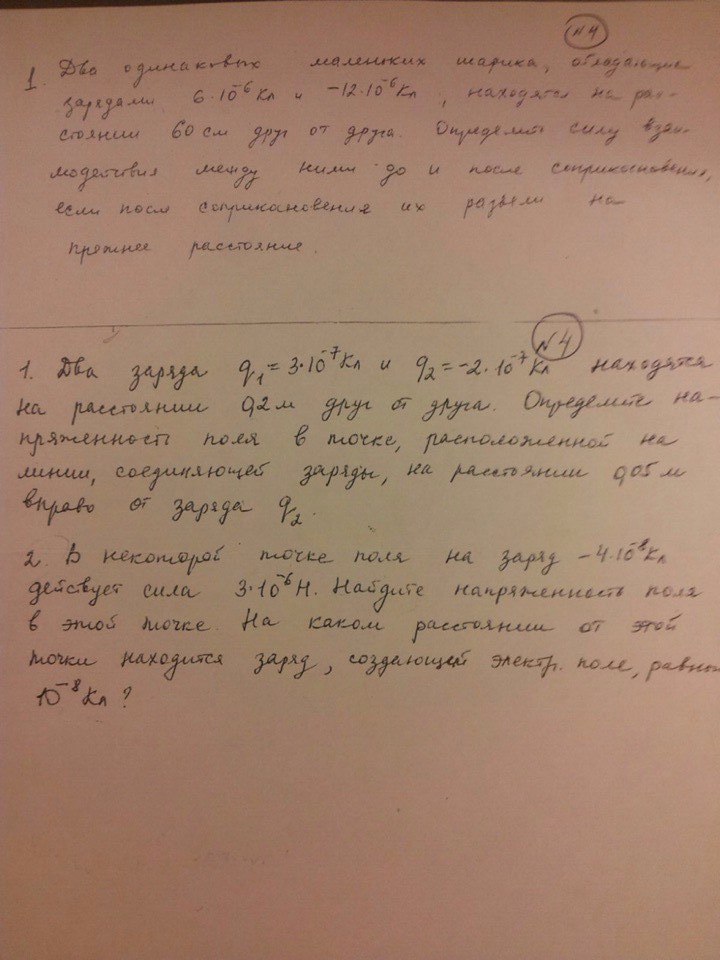 №4
1. Два одинаковых маленьких шарика, обладающие
зарядами 6·10⁻⁶Кл и -12·10⁻⁶Кл, находятся на рас-
стоянии 60 см друг от друга. Определите силу взаи-
модетствия между ними до и после соприкосновения,
если посл соприкановения их развели на
прежнее расстояние.
№4
1. Два заряда q₁=3·10⁻⁷Кл и q₂=-2·10⁻⁷Кл находятся
на расстоянии 0,2 м друг от друга. Определите на-
пряженность поля в точке, расположенной на
линии, соединяющей заряды, на расстоянии 0,05 м
вправо от заряда q₂.
2. В некоторой точке поля на заряд -4·10⁻⁸Кл
действует сила 3·10⁻⁶Н. Найдите напряженность поля
в этой точке. На каком расстоянии от этой
точки находится заряд, создающей электр. поле, равный
10⁻⁸Кл?